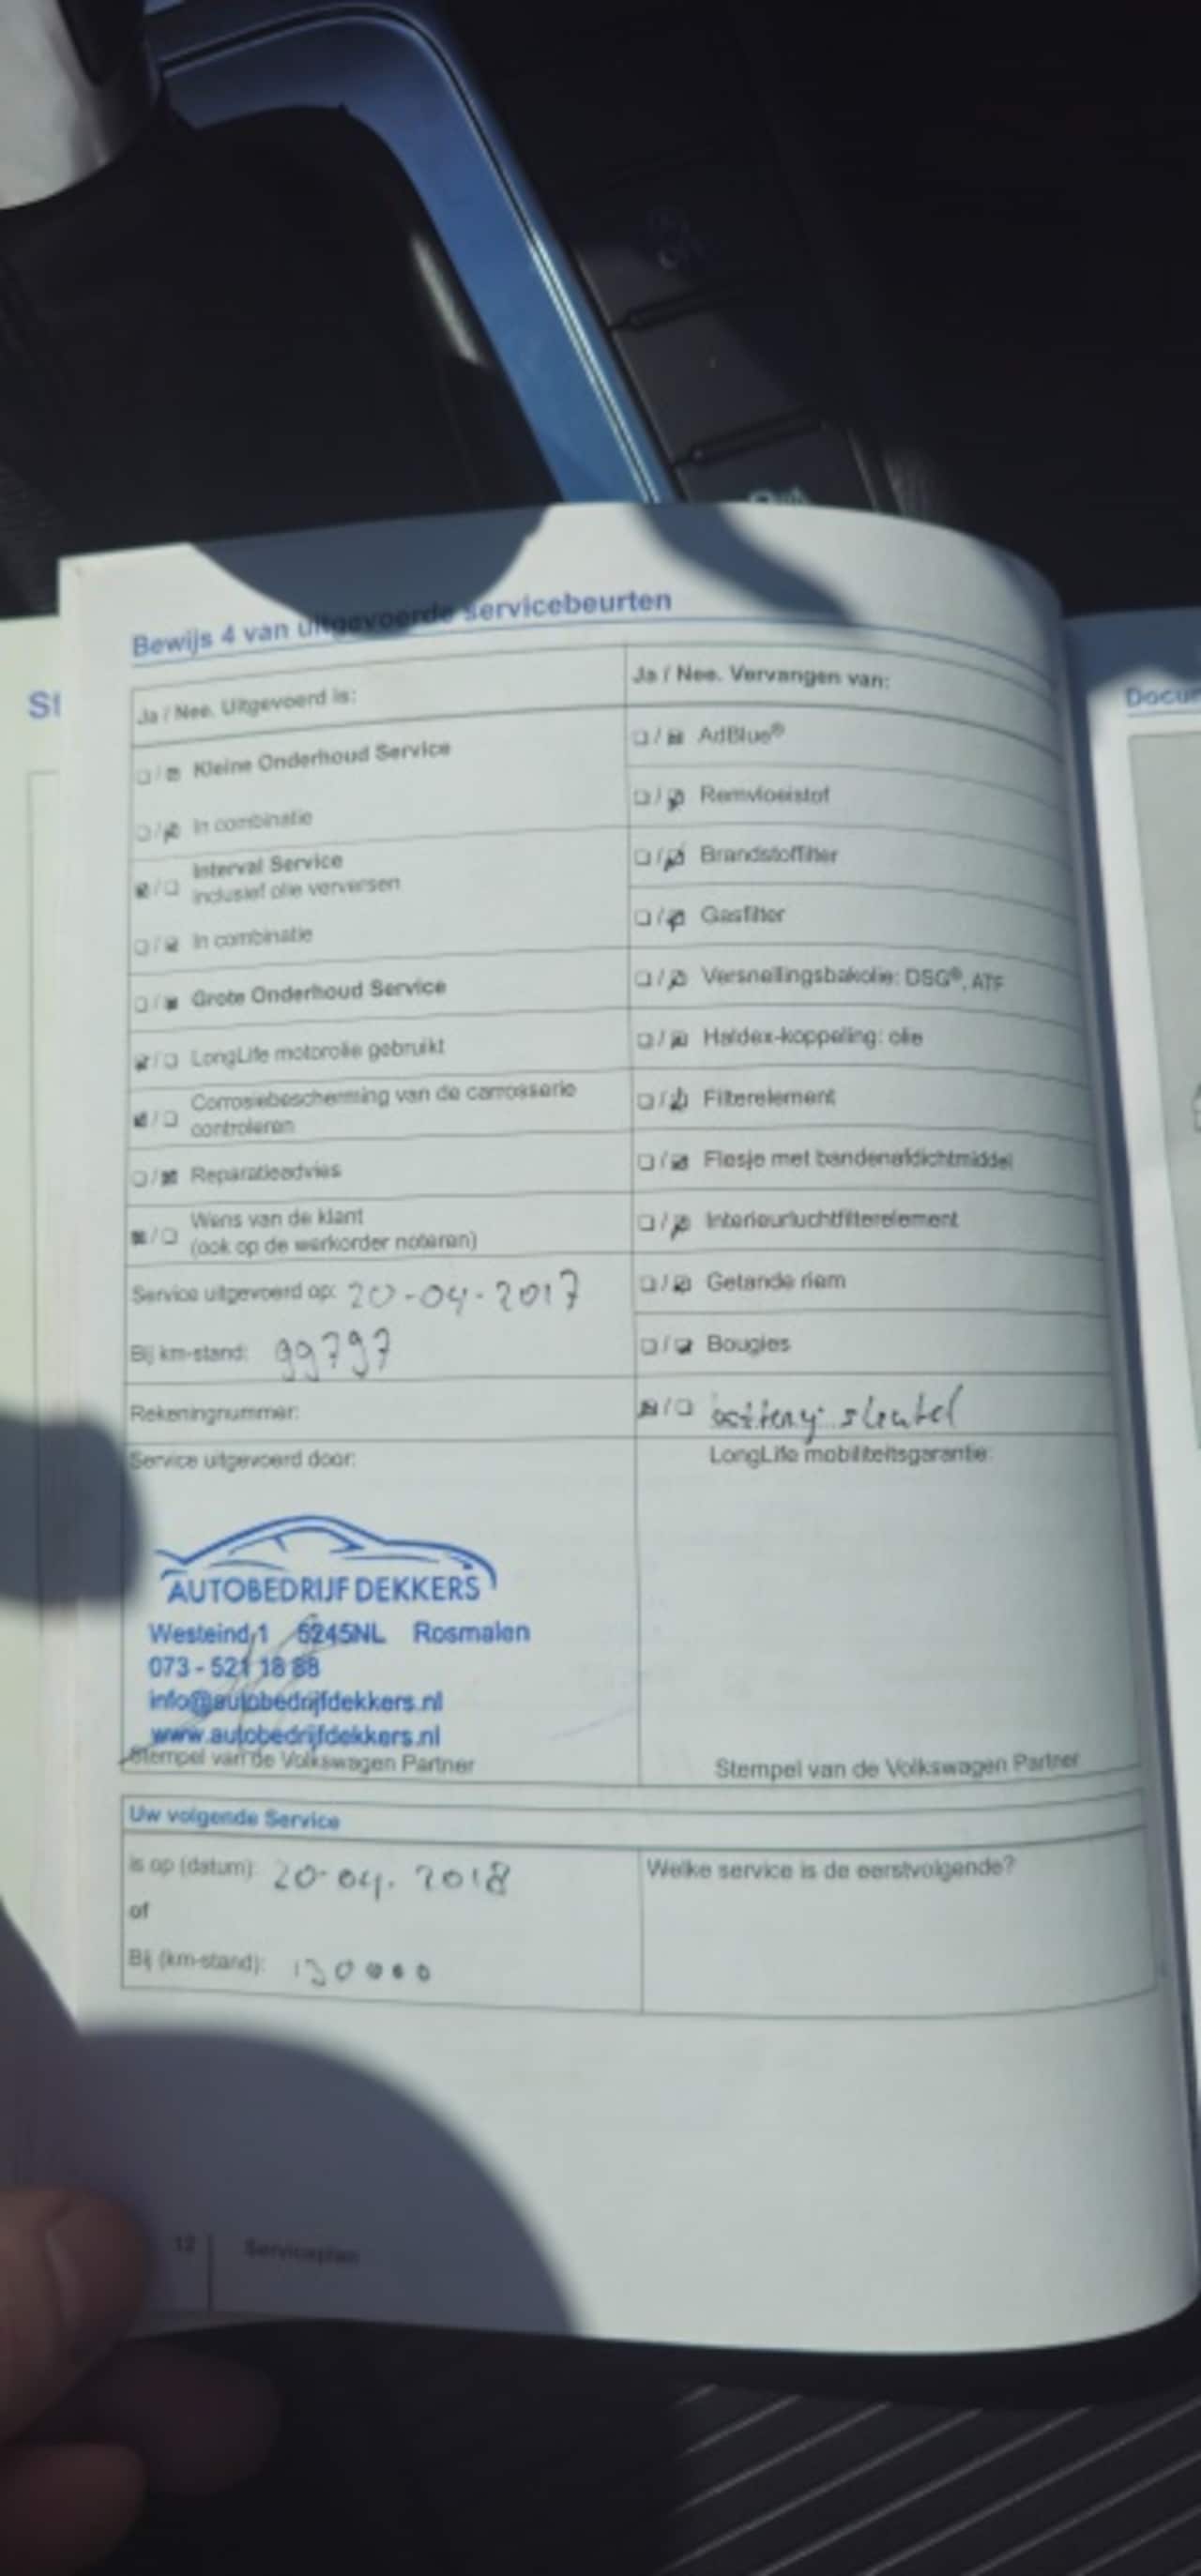 Bewijs 4 van uitgevoerde servicebeurten
Ja / Nee. Uitgevoerd is:
☐ / ☒ Kleine Onderhoud Service
☐ / ☒ In combinatie
☒ / ☐ Interval Service
inclusief olie verversen
☐ / ☒ In combinatie
☐ / ☒ Grote Onderhoud Service
☒ / ☐ LongLife motorolie gebruikt
☒ / ☐ Corrosiebescherming van de carrosserie
controleren
☐ / ☒ Reparatieadvies
☒ / ☐ Wens van de klant
(ook op de werkorder noteren)
Service uitgevoerd op: 20-04-2017
Bij km-stand: 99797
Rekeningnummer:
Service uitgevoerd door:
AUTOBEDRIJF DEKKERS
Westeind 1 5245NL Rosmalen
073 - 521 18 88
info@autobedrijfdekkers.nl
www.autobedrijfdekkers.nl
Stempel van de Volkswagen Partner
Ja / Nee. Vervangen van:
☐ / ☒ AdBlue®
☐ / ☒ Remvloeistof
☐ / ☒ Brandstoffilter
☐ / ☒ Gasfilter
☐ / ☒ Versnellingsbakolie: DSG®, ATF
☐ / ☒ Haldex-koppeling: olie
☐ / ☒ Filterelement
☐ / ☒ Flesje met bandenafdichtmiddel
☐ / ☒ Interieurluchtfilterelement
☐ / ☒ Getande riem
☐ / ☒ Bougies
☒ / ☐ battery sleutel
LongLife mobiliteitsgarantie:
Stempel van de Volkswagen Partner
Uw volgende Service
is op (datum): 20-04-2018
of
Bij (km-stand): 130000
Welke service is de eerstvolgende?
12 Serviceplan
St
Docum